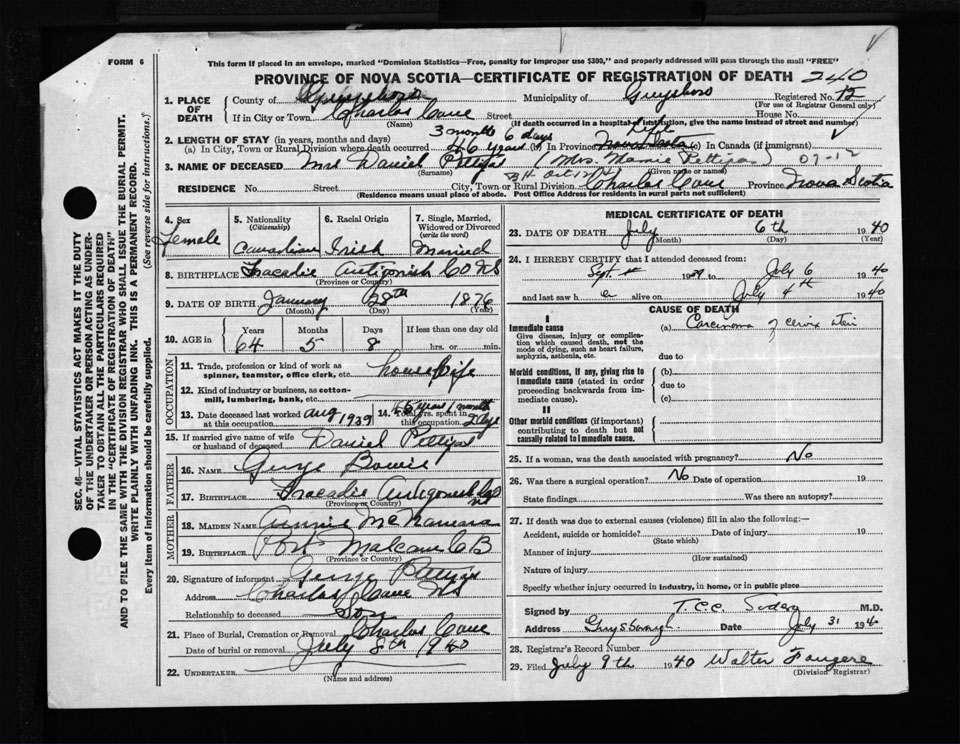 FORM 6
This form if placed in an envelope, marked "Dominion Statistics—Free, penalty for improper use $300," and properly addressed will pass through the mail "FREE"
PROVINCE OF NOVA SCOTIA—CERTIFICATE OF REGISTRATION OF DEATH 240
1. PLACE OF DEATH
County of Guysboro Municipality of Guysboro Registered No. 12
(For use of Registrar General only)
If in City or Town Charlas Cove Street House No.
(Name) (If death occurred in a hospital or institution, give the name instead of street and number)
2. LENGTH OF STAY (in years, months and days) 3 months 6 days
(a) In City, Town or Rural Division where death occurred 46 years (b) In Province Life (c) In Canada (if immigrant)
3. NAME OF DECEASED Mrs Daniel Pettipas (Mrs. Mamie Pettipas) 07-12
(Surname) (Given name or names)
RESIDENCE No. Street City, Town or Rural Division Charlas Cove Province Nova Scotia
(Residence means usual place of abode. Post Office Address for residents in rural parts not sufficient)
4. Sex
Female
5. Nationality (Citizenship)
Canadian
6. Racial Origin
Irish
7. Single, Married, Widowed or Divorced (write the word)
Married
8. BIRTHPLACE Tracadie Antigonish CO NS
(Province or Country)
9. DATE OF BIRTH January 28th 1876
(Month) (Day) (Year)
10. AGE in
Years Months Days If less than one day old
64 5 8 hrs. or min.
OCCUPATION
11. Trade, profession or kind of work as spinner, teamster, office clerk, etc. housewife
12. Kind of industry or business, as cotton-mill, lumbering, bank, etc.
13. Date deceased last worked at this occupation Aug 1939
14. Total yrs. spent in this occupation 45 years 1 month 2 days
15. If married give name of wife or husband of deceased Daniel Pettipas
FATHER
16. NAME George Bowie
17. BIRTHPLACE Tracadie Antigonish Co NS
(Province or Country)
MOTHER
18. MAIDEN NAME Annie McNamara
19. BIRTHPLACE Port Malcom C B
(Province or Country)
20. Signature of informant George Pettipas
Address Charlas Cove NS
Relationship to deceased Son
21. Place of Burial, Cremation or Removal Charlas Cove
Date of burial or removal July 8th 1940
22. UNDERTAKER
(Name and address)
MEDICAL CERTIFICATE OF DEATH
23. DATE OF DEATH July 6th 1940
(Month) (Day) (Year)
24. I HEREBY CERTIFY that I attended deceased from:
Sept 1939 to July 6 1940
and last saw h er alive on July 4th 1940
CAUSE OF DEATH
I
Immediate cause
Give disease, injury or complication which caused death, not the mode of dying, such as heart failure, asphyxia, asthenia, etc.
(a) Carcinoma of cervix uteri
due to
Morbid conditions, if any, giving rise to immediate cause (stated in order proceeding backwards from immediate cause).
(b)
due to
(c)
II
Other morbid conditions (if important) contributing to death but not causally related to immediate cause.
25. If a woman, was the death associated with pregnancy? No
26. Was there a surgical operation? No Date of operation 19
State findings Was there an autopsy?
27. If death was due to external causes (violence) fill in also the following:—
Accident, suicide or homicide? Date of injury 19
(State which)
Manner of injury
(How sustained)
Nature of injury
Specify whether injury occurred in industry, in home, or in public place
Signed by T.C.C. Sodero M.D.
Address Guysborough Date July 31 1940
28. Registrar's Record Number
29. Filed July 9th 1940 Walter Fougere
(Division Registrar)
SEC. 46—VITAL STATISTICS ACT MAKES IT THE DUTY
OF THE UNDERTAKER OR PERSON ACTING AS UNDERTAKER TO OBTAIN ALL THE PARTICULARS REQUIRED
IN THE "CERTIFICATE OF REGISTRATION OF DEATH"
AND TO FILE THE SAME WITH THE DIVISION REGISTRAR WHO SHALL ISSUE THE BURIAL PERMIT.
WRITE PLAINLY WITH UNFADING INK. THIS IS A PERMANENT RECORD.
Every item of information should be carefully supplied. (See reverse side for instructions.)